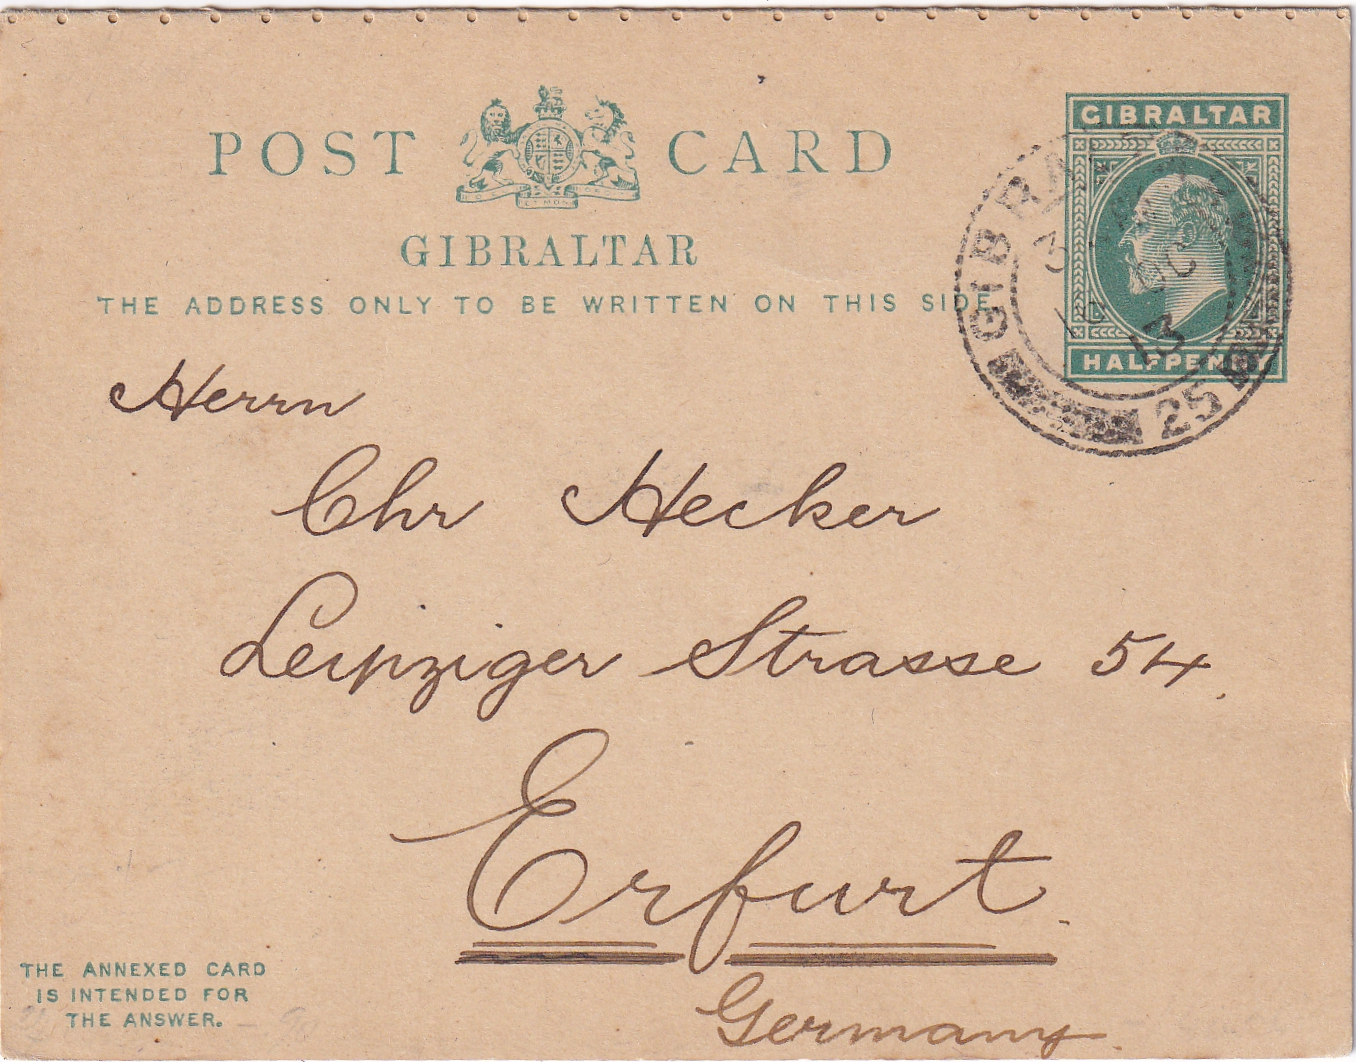 POST CARD
GIBRALTAR
THE ADDRESS ONLY TO BE WRITTEN ON THIS SIDE
GIBRALTAR
HALFPENNY
GIBRALTAR
13
25
Herrn
Chr Hecker
Leipziger Strasse 54.
Erfurt.
Germany
THE ANNEXED CARD
IS INTENDED FOR
THE ANSWER.